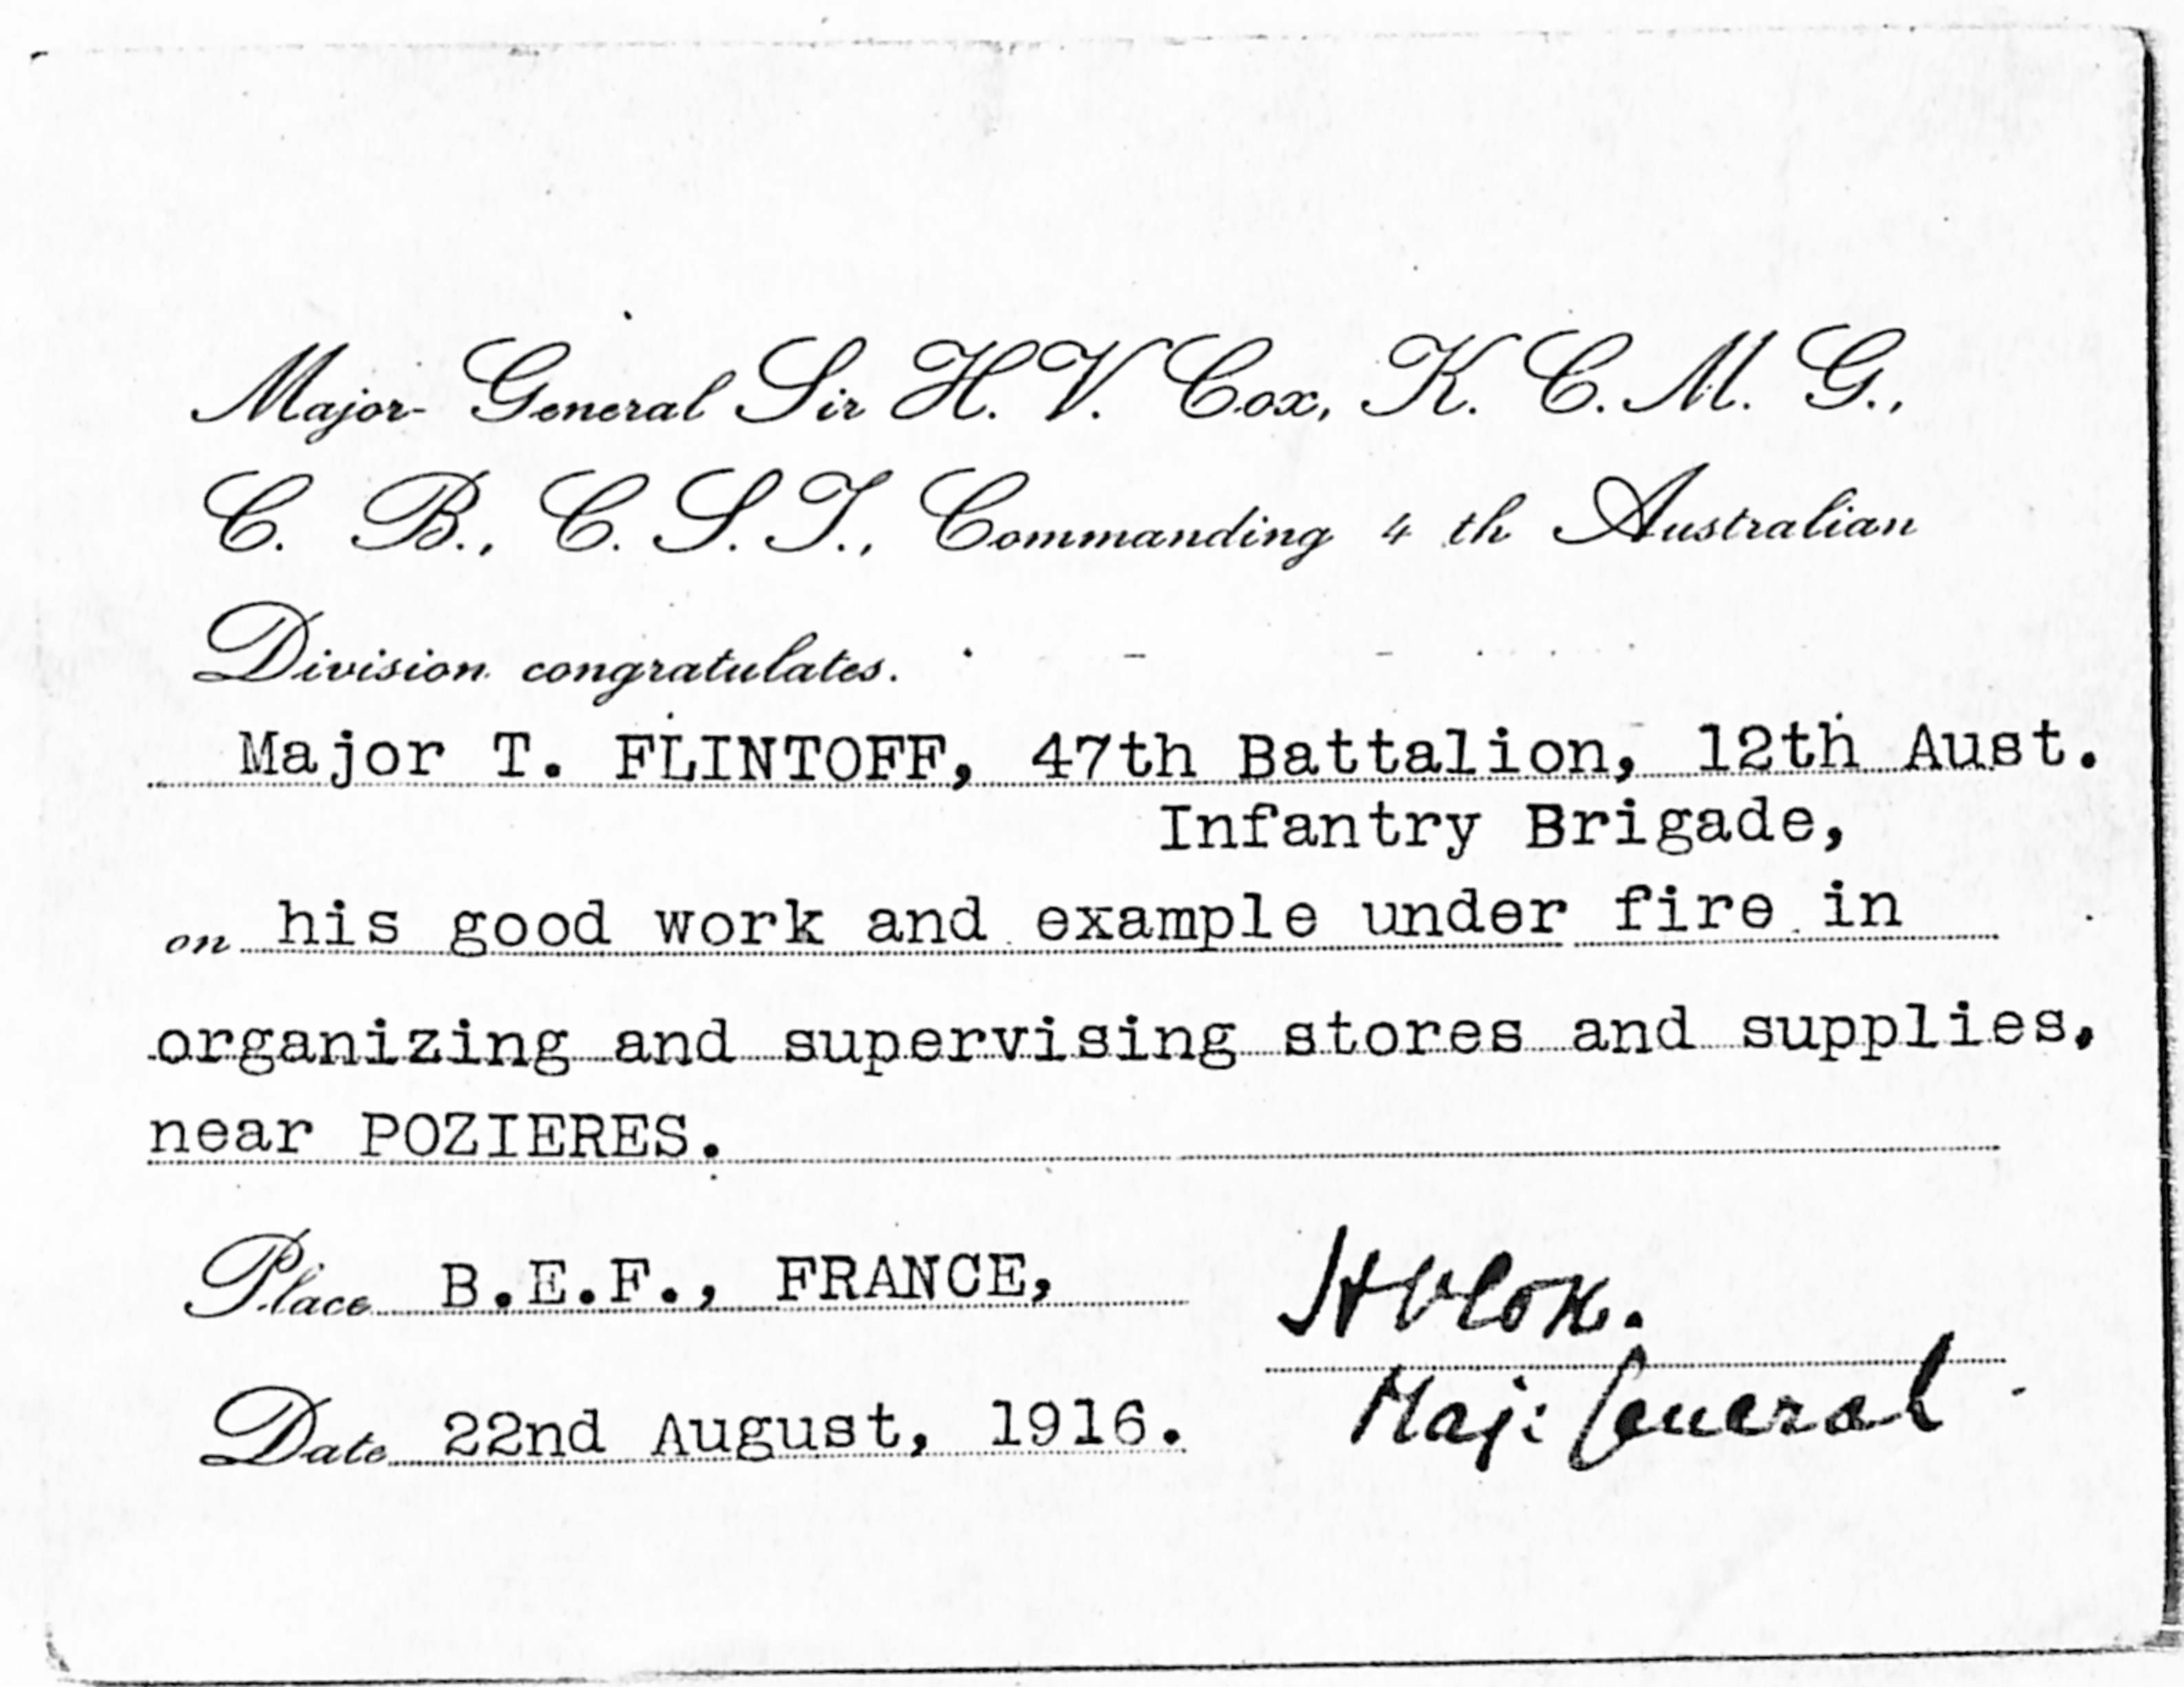 Major-General Sir H. V. Cox, K. C. M. G.,
C. B., C. S. I., Commanding 4 th Australian
Division congratulates.
Major T. FLINTOFF, 47th Battalion, 12th Aust.
Infantry Brigade,
on his good work and example under fire in
organizing and supervising stores and supplies,
near POZIERES.
Place B.E.F., FRANCE,
HVCox.
Date 22nd August, 1916.
Maj: General